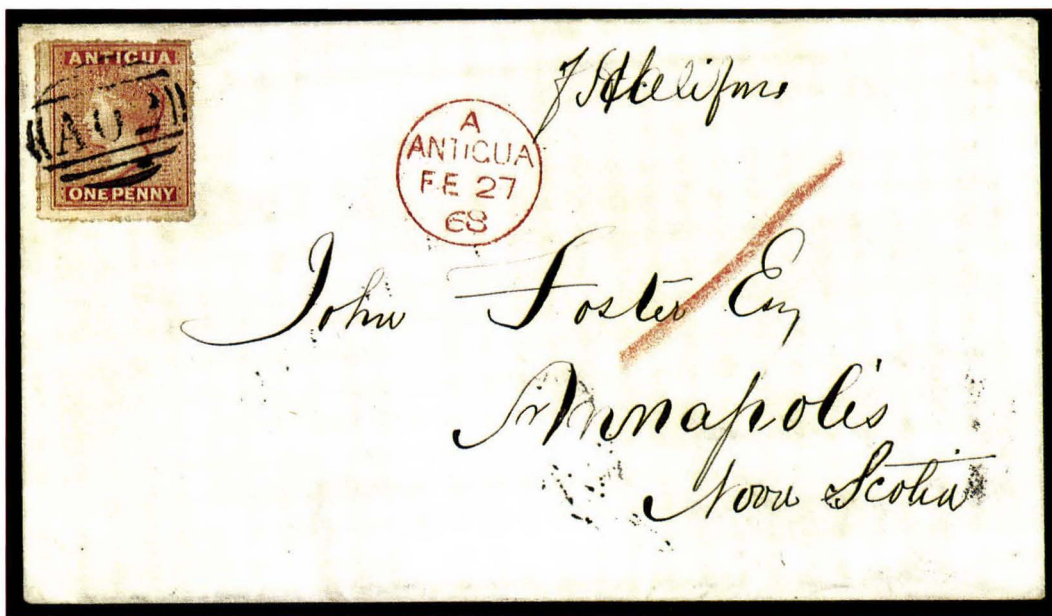 ANTIGUA
A02
ONE PENNY
A
ANTIGUA
FE 27
68
John Foster Esq
Annapolis
Nova Scotia